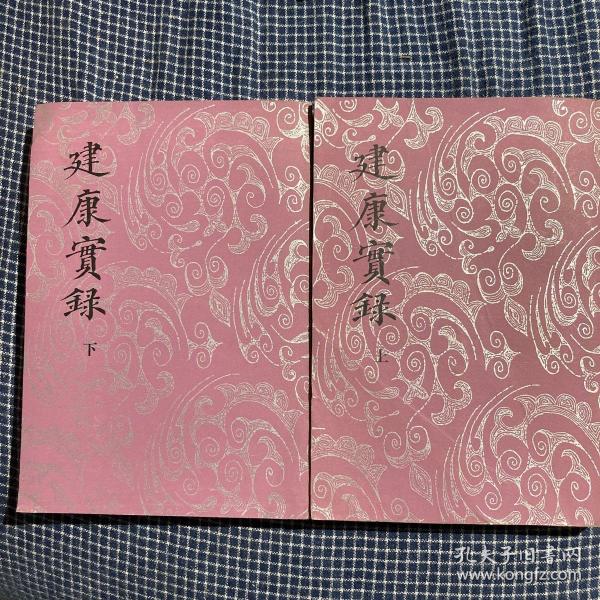 建康實錄
下
建康實錄
上
孔夫子旧书网
www.kongfz.com